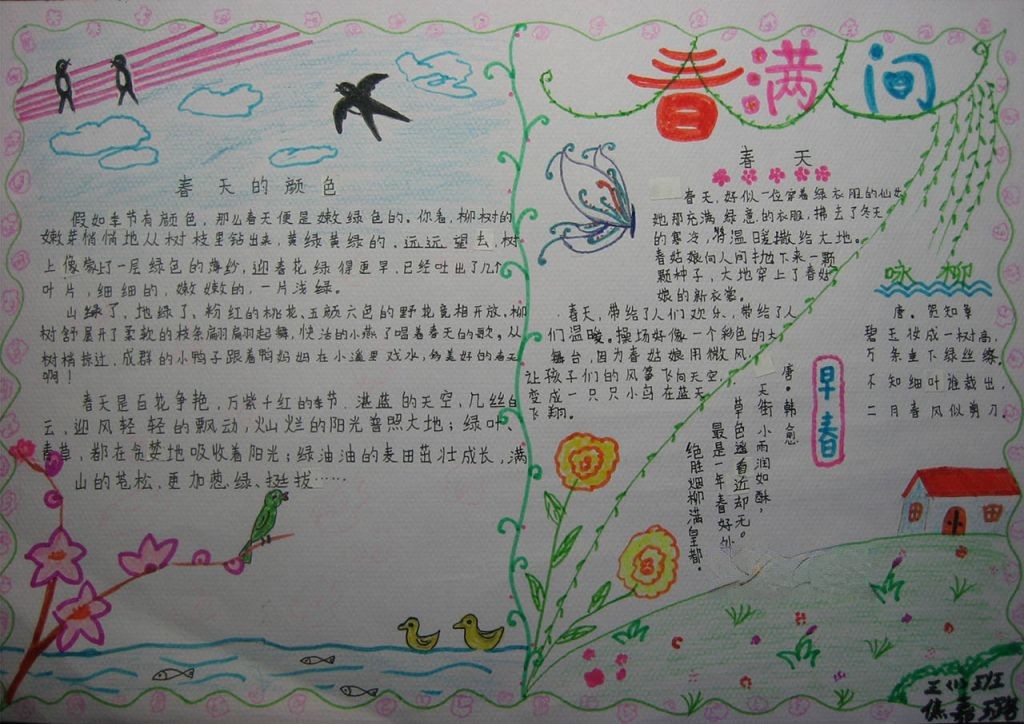 春满间
春天的颜色
假如季节有颜色，那么春天便是嫩绿色的。你看，柳树的
嫩芽悄悄地从树枝里钻出来，黄绿黄绿的，远远望去，树
上像蒙上了一层绿色的薄纱，迎春花绿得更早，已经吐出了几个
叶片，细细的，嫩嫩的，一片浅绿。
山绿了，地绿了，粉红的桃花、五颜六色的野花竞相开放，柳
树舒展开了柔软的枝条翩翩起舞，快活的小燕了唱着春天的歌。从
树梢掠过，成群的小鸭子跟着鸭妈妈在小溪里戏水，多美好的春天
啊！
春天是百花争艳，万紫十红的季节。湛蓝的天空，几丝白
云，迎风轻轻的飘动，灿烂的阳光普照大地；绿叶、
青草，都在贪婪地吸收着阳光；绿油油的麦田茁壮成长，满
山的苍松，更加葱绿、挺拔……
春天
春天，好似一位穿着绿衣服的仙女
她那充满绿意的衣服，拂去了冬天
的寒冷，将温暖撒给大地。
春姑娘向人间抛下来一颗
颗种子，大地穿上了春姑
娘的新衣裳。
春天，带给了人们欢乐，带给了人
们温暖。操场好像一个彩色的大
舞台，因为春姑娘用微风
让孩子们的风筝飞向天空，
变成一只只小鸟在蓝天
飞翔。
咏柳
唐。贺知章
碧玉妆成一树高，
万条垂下绿丝绦。
不知细叶谁裁出，
二月春风似剪刀。
早春
唐。韩愈
天街小雨润如酥，
草色遥看近却无。
最是一年春好处
绝胜烟柳满皇都。